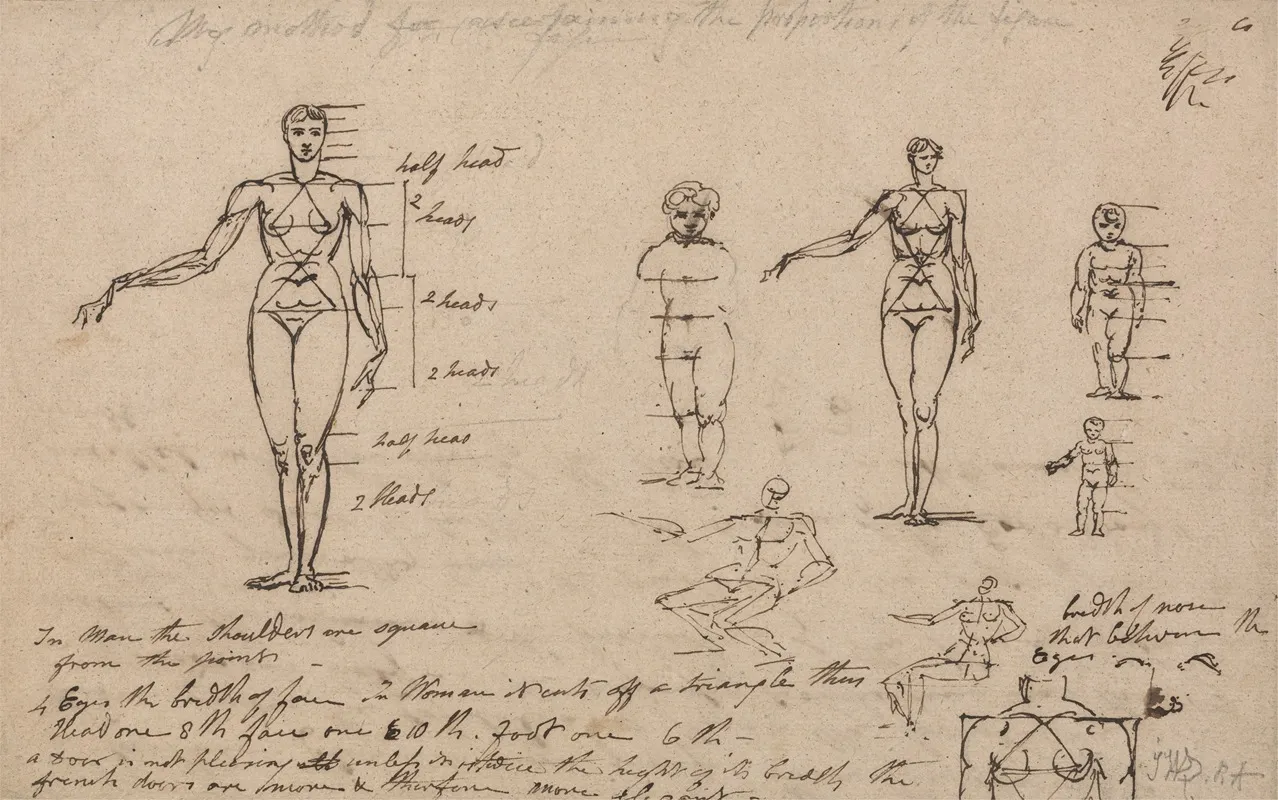 My method for ascertaining the proportions of the figure
half head
2 heads
2 heads
2 heads
half head
2 Heads
In Man the Shoulders are square
from the points
4 Eyes the bredth of face in Woman it cuts off a triangle thus
Head one 8th face one 10th. Foot one 6th
a Door is not pleasing unless in twice the height of its bredth the
french doors are more & therefore more
bredth of nose
that between the
Eyes
RA